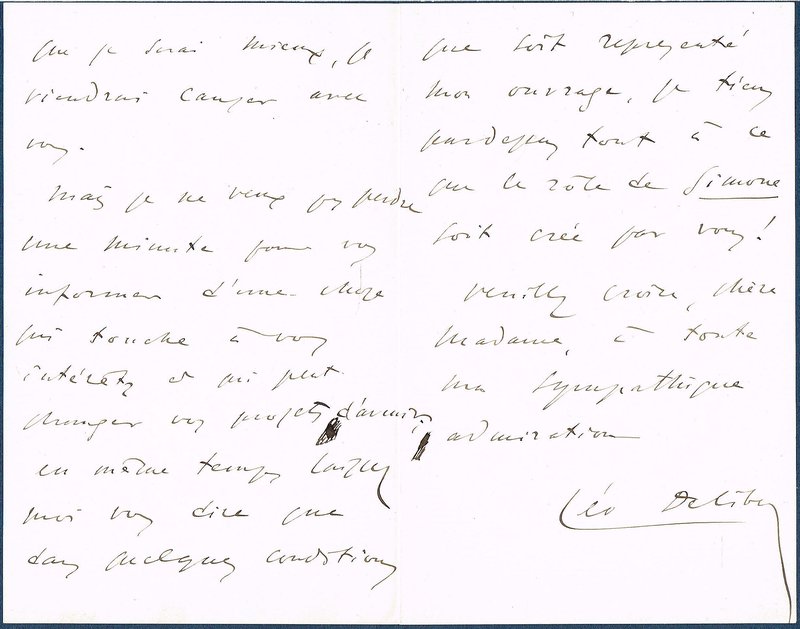 que je serai mieux, je
viendrai causer avec
vous.
Mais je ne veux pas perdre
une minute pour vous
informer d'une chose
qui touche à vos
intérêts et qui peut
changer vos projets d'avenir;
en même temps laissez
moi vous dire que
dans quelques conditions
que soit représenté
mon ouvrage, je tiens
pardessus tout à ce
que le rôle de Simone
soit créé par vous!
Veuillez croire, chère
Madame, à toute
ma sympathique
admiration
Léo Delibes